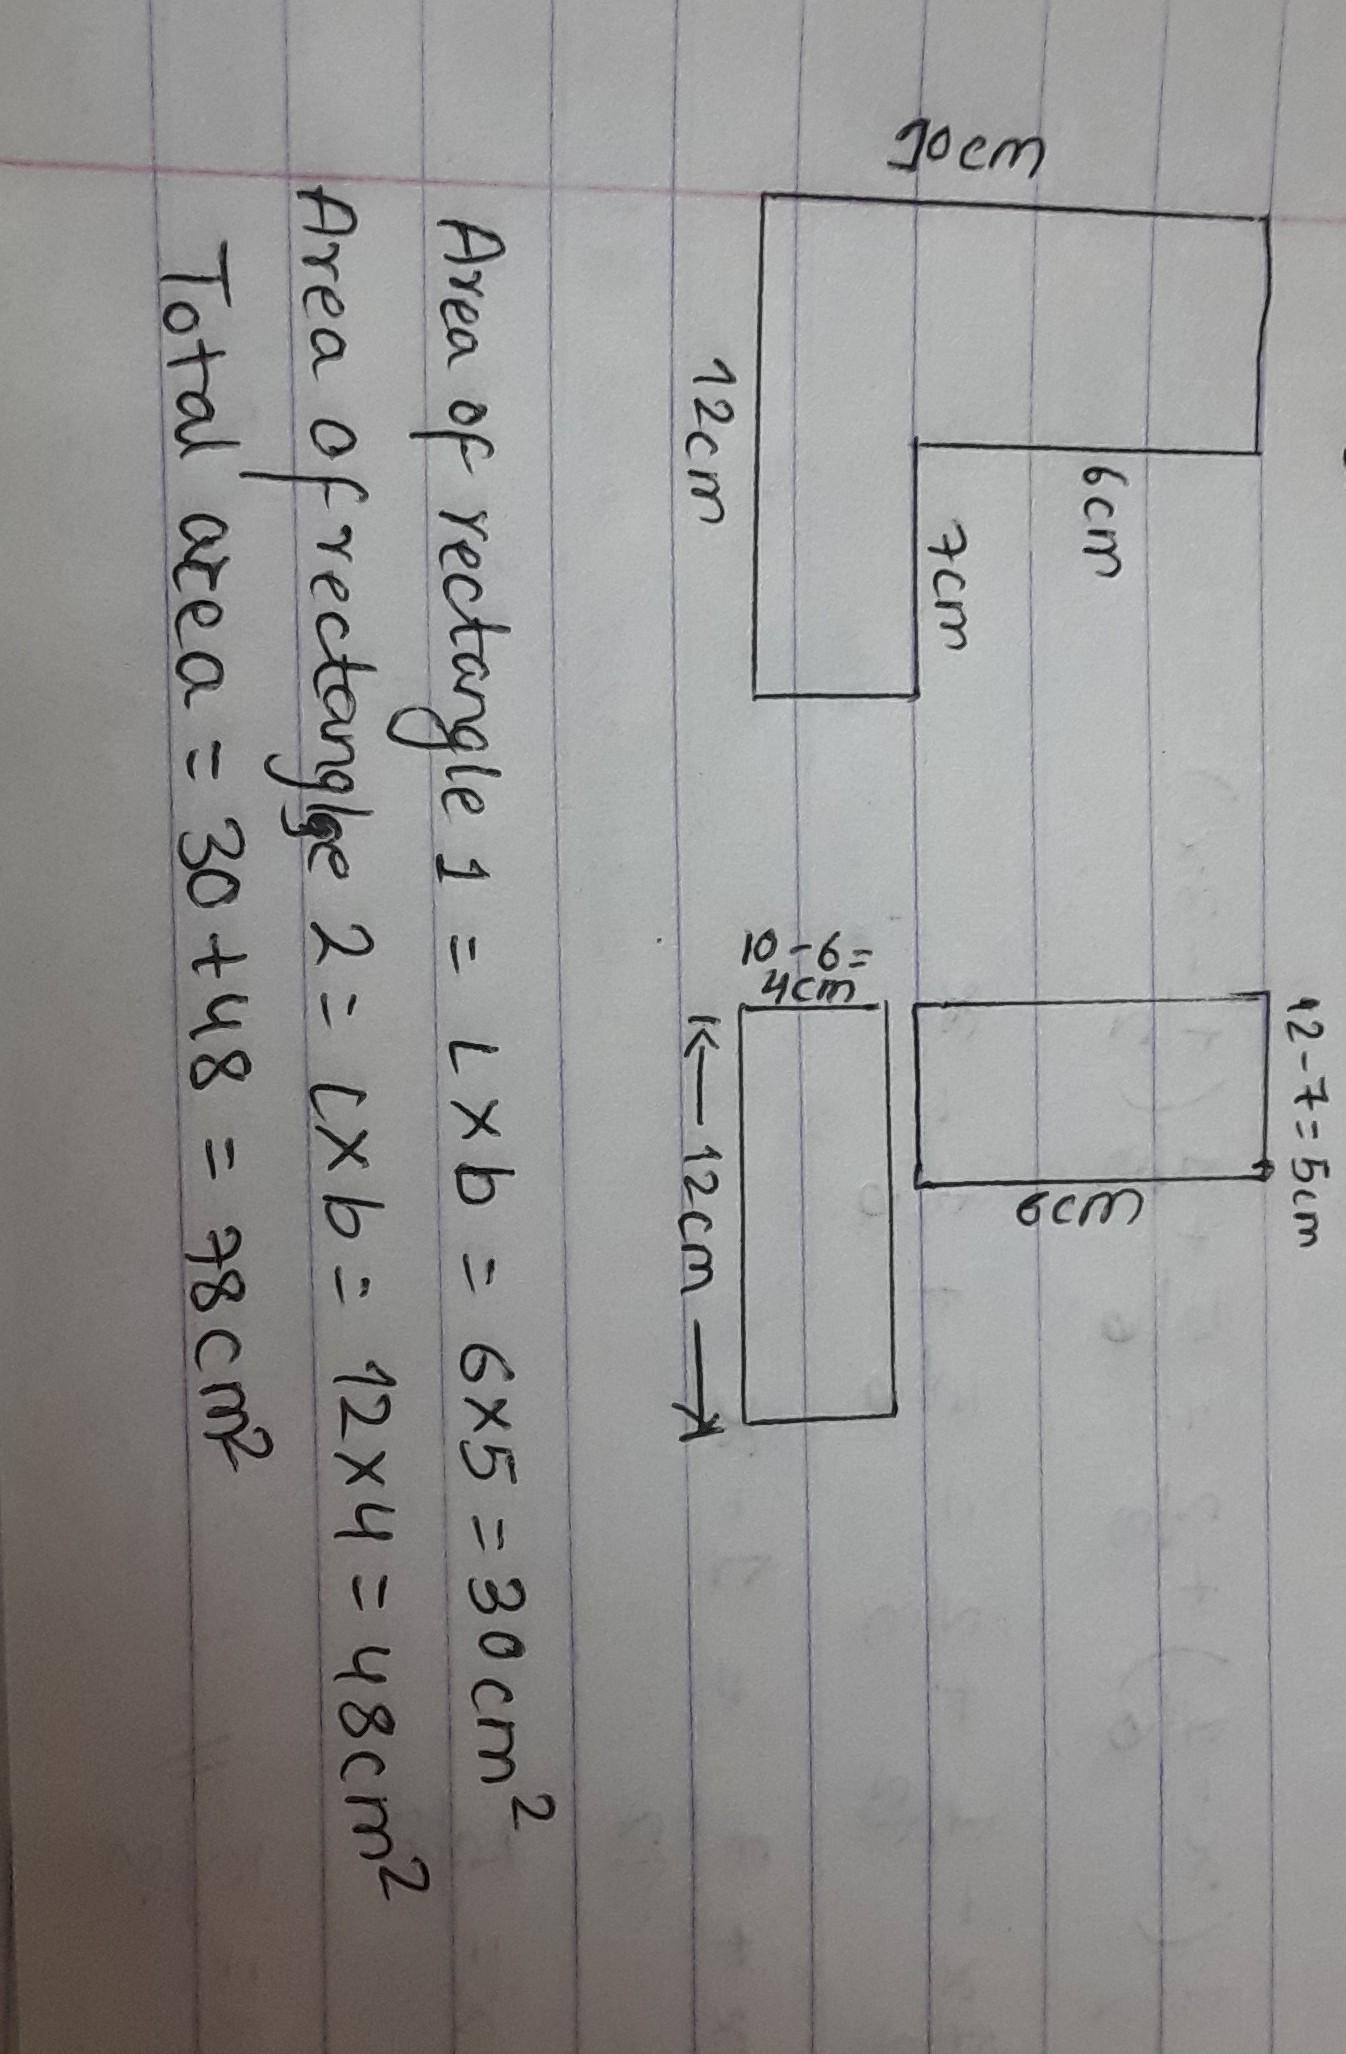 10cm
6cm
7cm
12cm
12-7=5cm
6cm
10-6=
4cm
12cm
Area of rectangle 1 = L×b = 6×5=30cm²
Area of rectanglge 2 = L×b = 12×4=48cm²
Total area = 30+48 = 78cm²